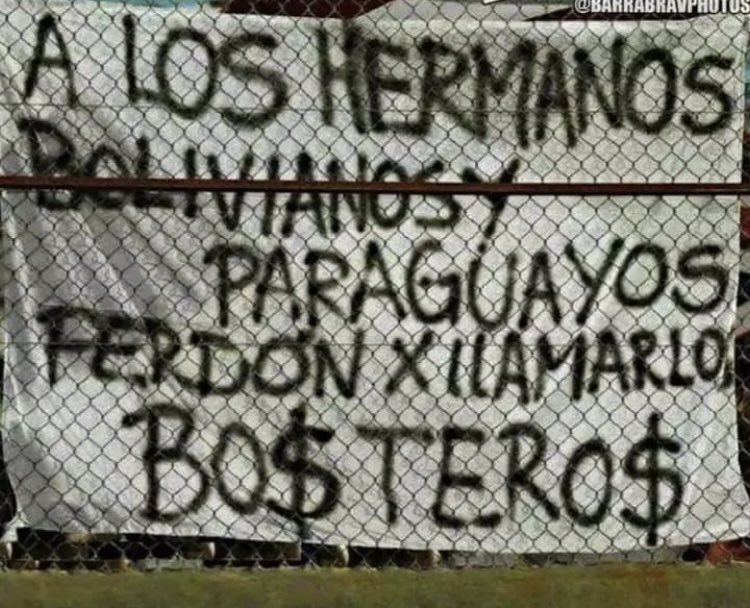 @BARRABRAVPHOTOS
A LOS HERMANOS
BOLIVIANOS Y
PARAGUAYOS
PERDÓN X LLAMARLO
BO$TERO$